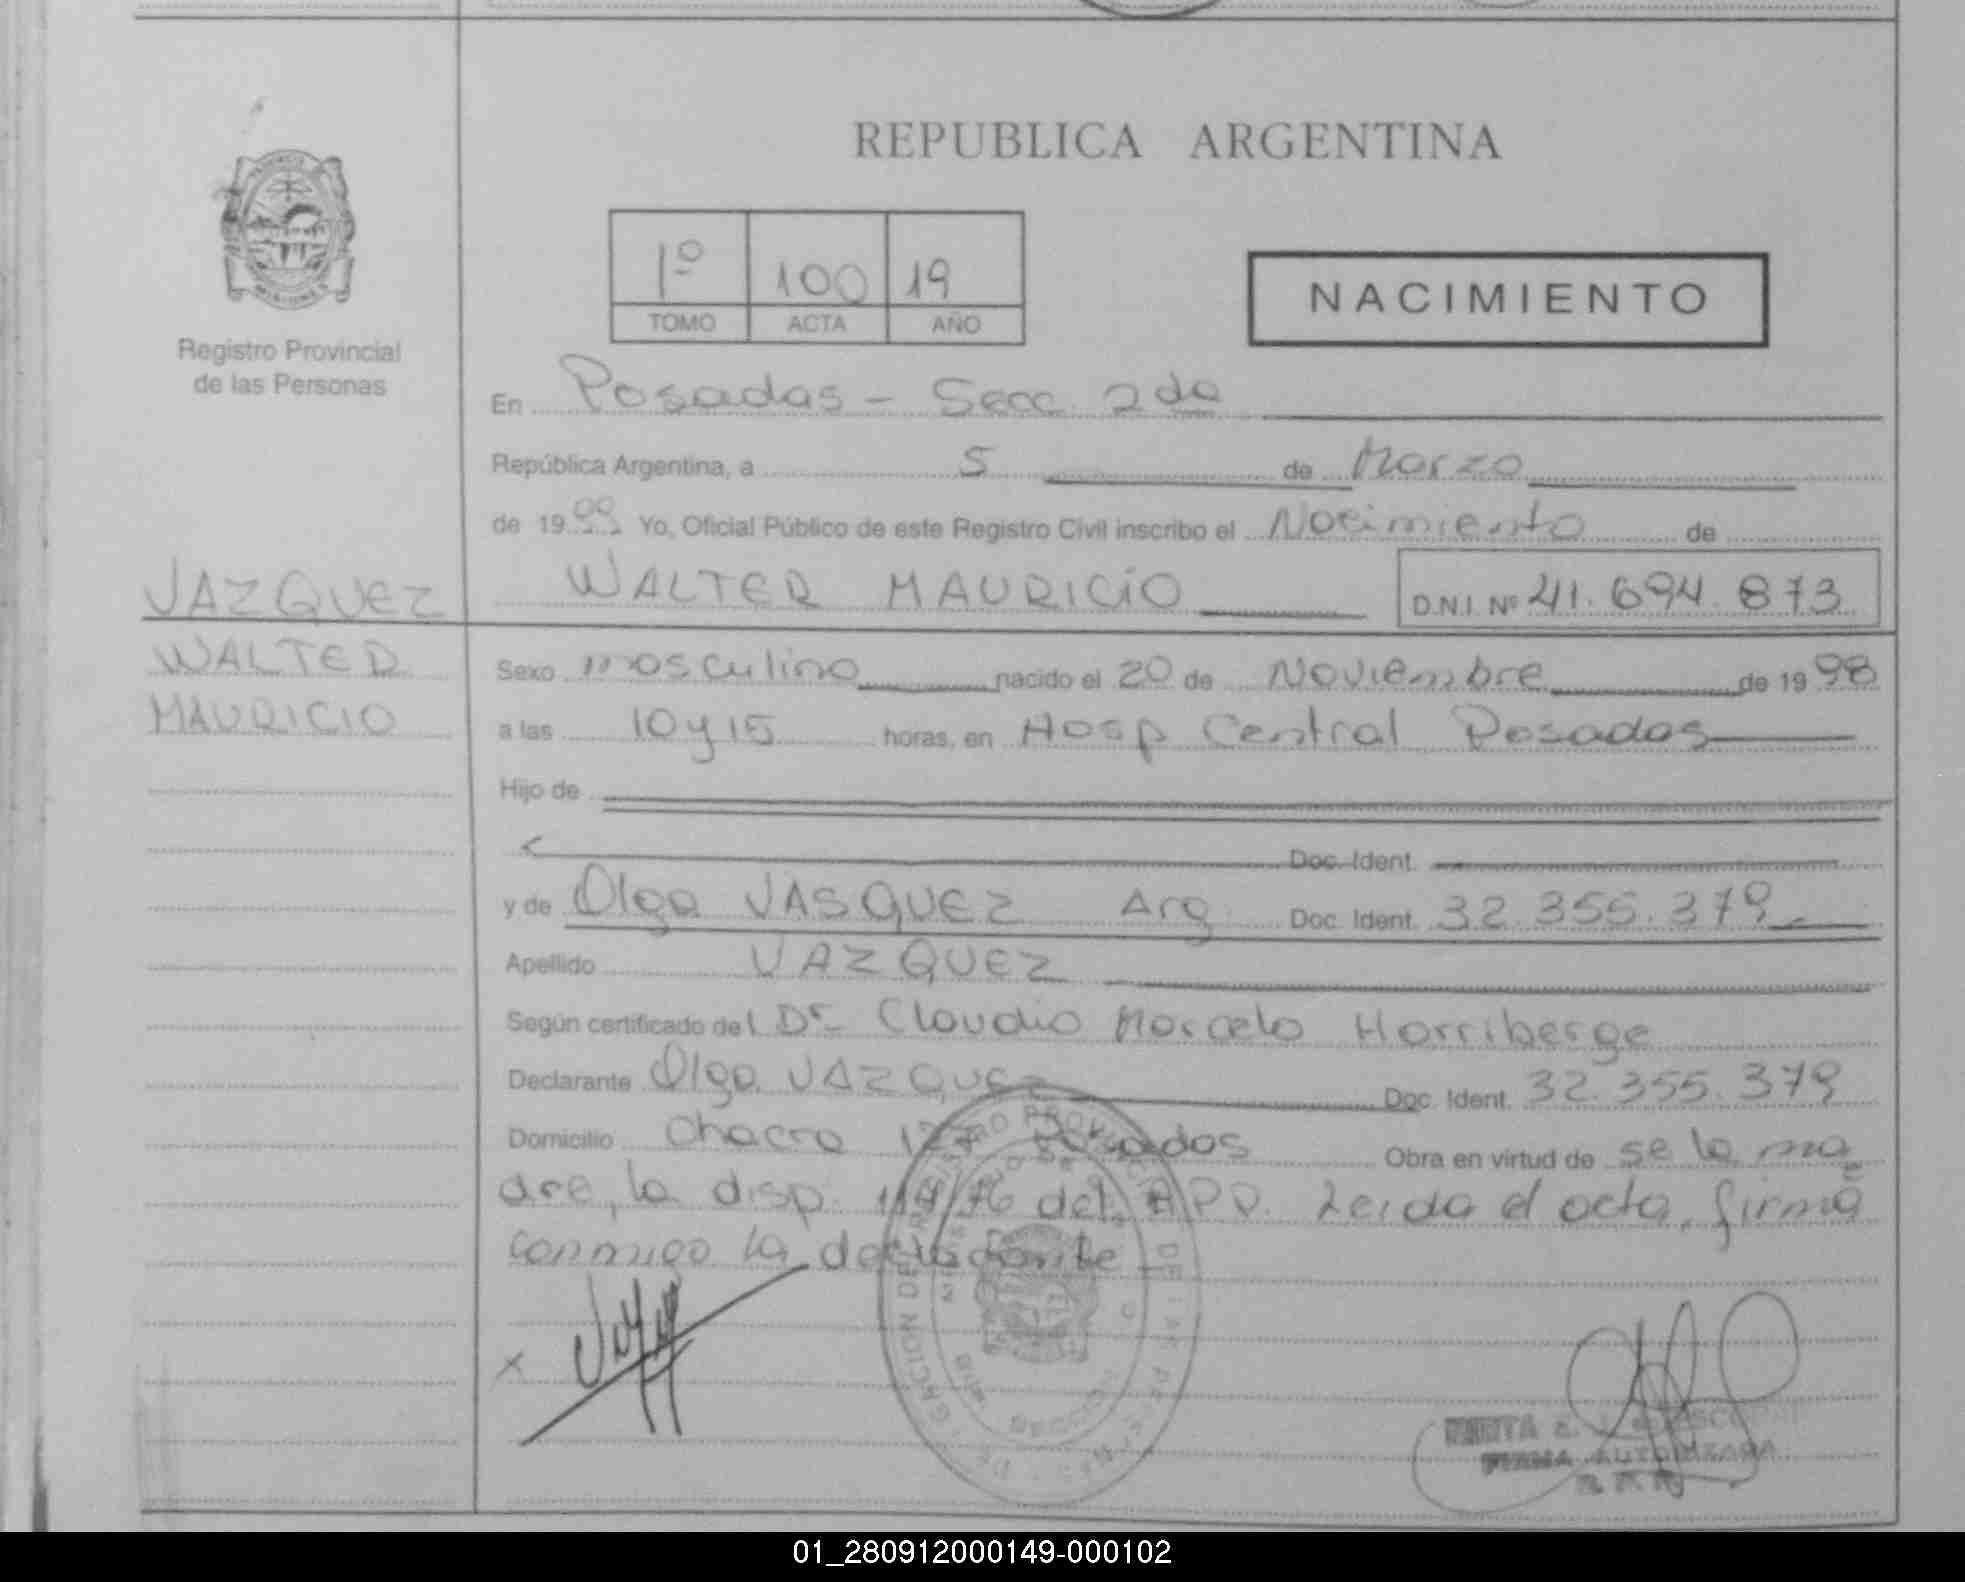 REPUBLICA ARGENTINA
1º 100 19
TOMO ACTA AÑO
NACIMIENTO
Registro Provincial
de las Personas
En Posadas - Secc 2da
República Argentina, a 5 de Marzo
de 1999 Yo, Oficial Público de este Registro Civil inscribo el Nacimiento de
VAZQUEZ
WALTER
MAURICIO
WALTER MAURICIO D.N.I. Nº 41.694.873
Sexo masculino nacido el 20 de Noviembre de 1998
a las 10 y 15 horas, en Hosp Central Posadas
Hijo de
Doc. Ident.
y de Olga VASQUEZ Arg Doc. Ident. 32.355.379
Apellido VAZQUEZ
Según certificado del Dr Claudio Marcelo Horriberge
Declarante Olga VAZQUEZ Doc. Ident. 32.355.379
Domicilio Chacra Posadas Obra en virtud de se la ma
dre, la disp. del RPP. Leida el acta, firma
conmigo la declarante
FIRMA AUTORIZADA
01_280912000149-000102